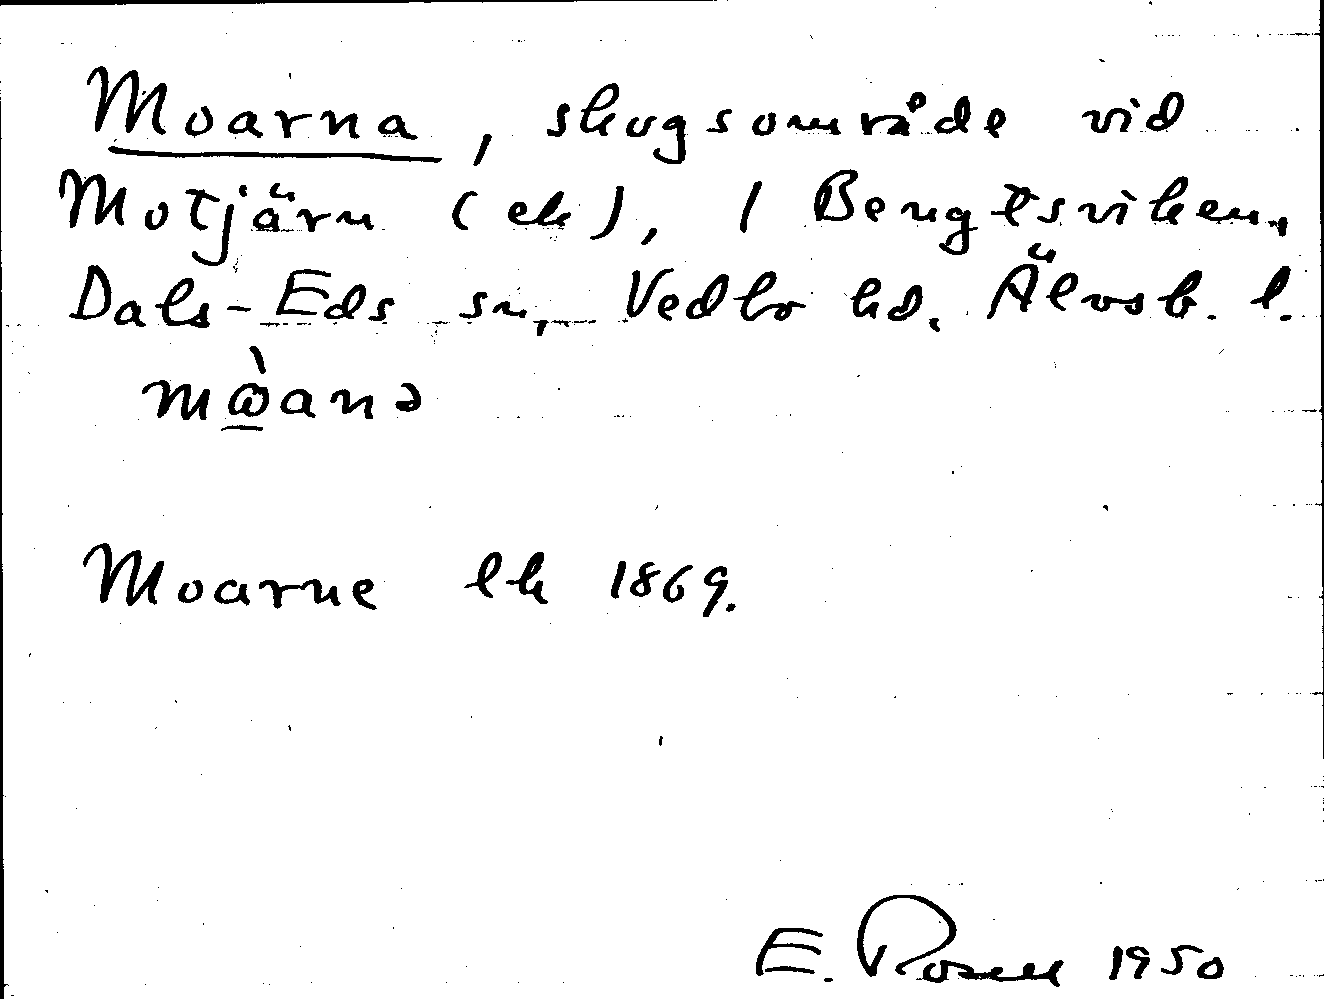 Moarna, skogsområde vid
Motjärn (ek), 1 Bengtsviken,
Dals-Eds sn, Vedbo hd. Älvsb. l.
mὼ̲anə
Moarne ek 1869.
E. Rosell 1950